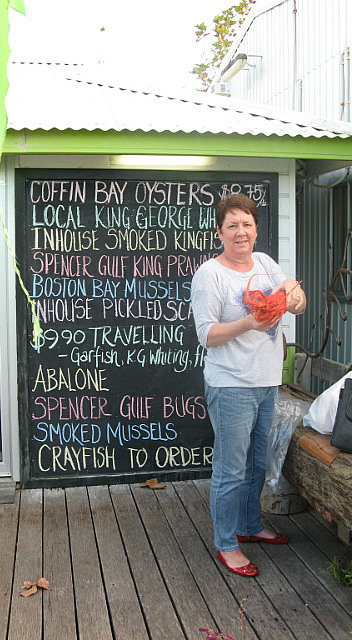 COFFIN BAY OYSTERS $8.75/
LOCAL KING GEORGE
INHOUSE SMOKED
SPENCER GULF KING
BOSTON BAY MUSSELS
INHOUSE PICKLED
$9.90 TRAVELLING
- Garfish, KG Whiting,
ABALONE
SPENCER GULF BUGS
SMOKED MUSSELS
CRAYFISH TO ORDER